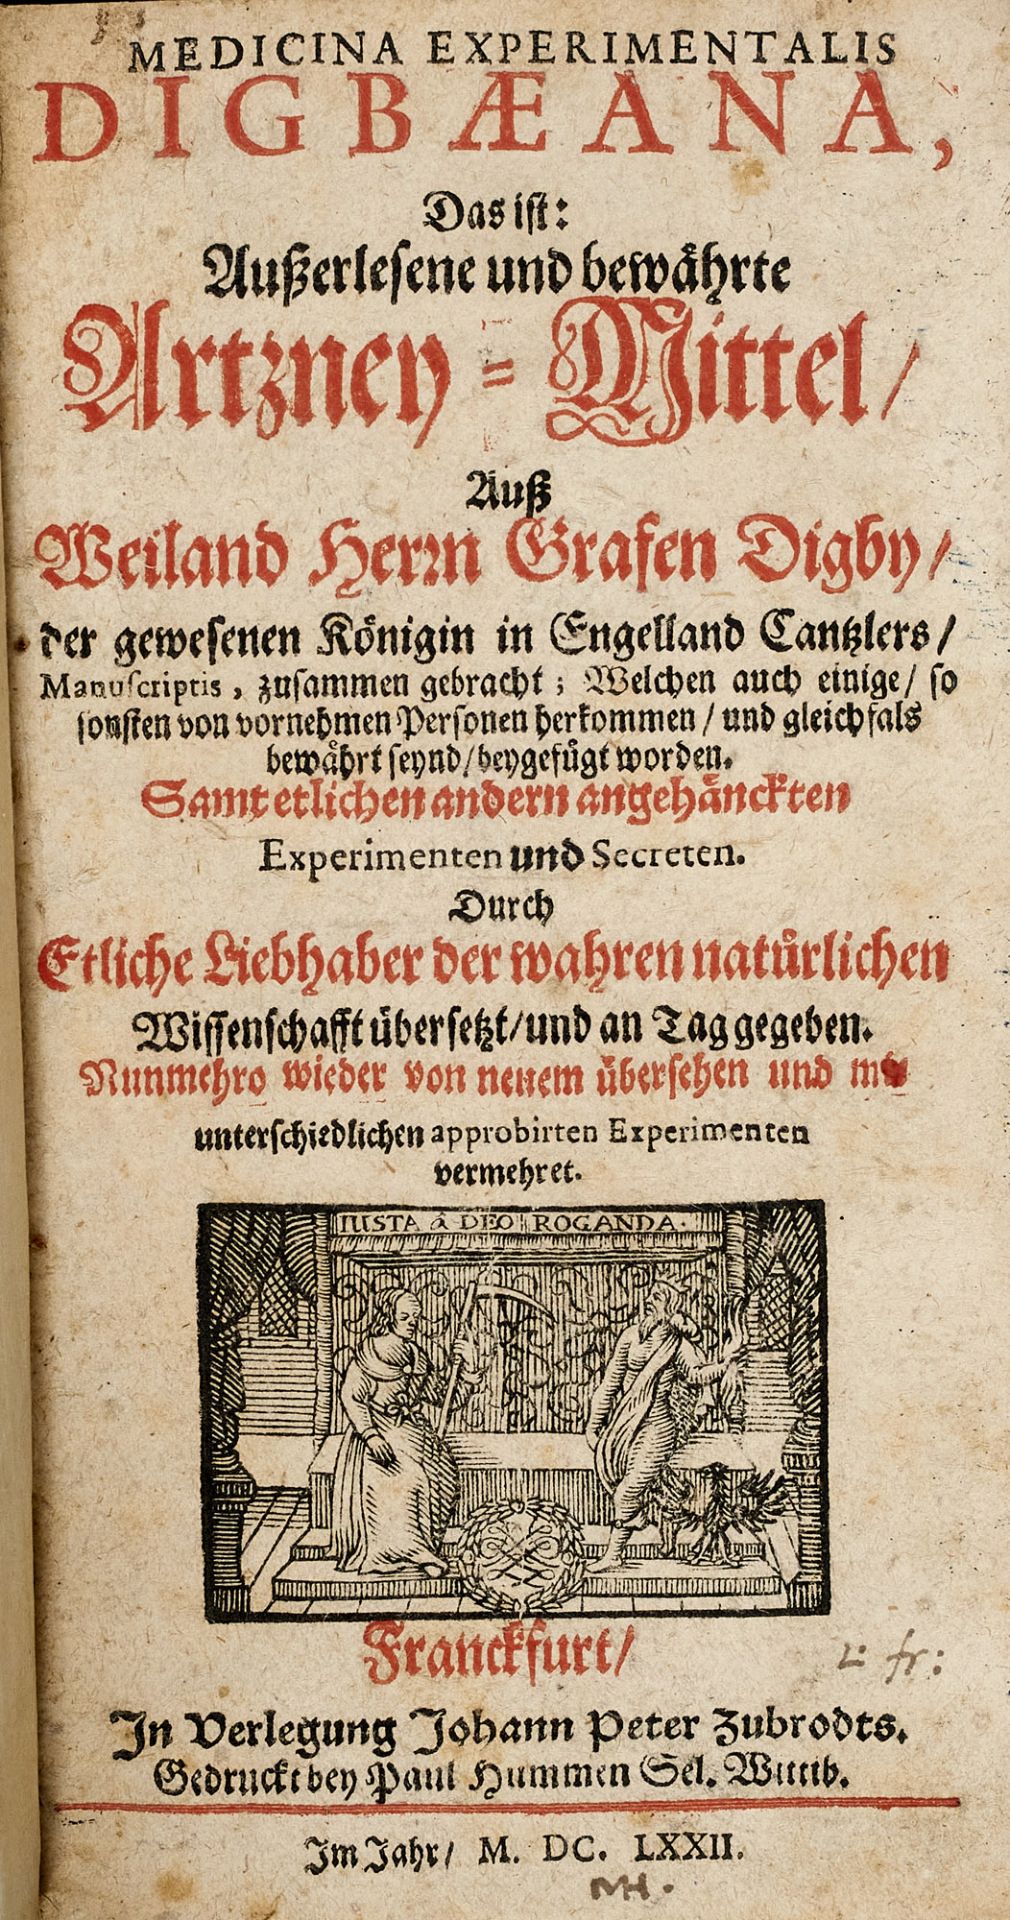 MEDICINA EXPERIMENTALIS
DIGBÆANA,
Das ist:
Außerlesene und bewåhrte
Artzney=Mittel/
Auß
Weiland Herrn Grafen Digby/
der gewesenen Königin in Engelland Cantzlers/
Manuscriptis, zusammen gebracht; Welchen auch einige/ so
sonsten von vornehmen Personen herkommen/ und gleichfals
bewåhrt seynd/ beygefůgt worden.
Samt etlichen andern angehånckten
Experimenten und Secreten.
Durch
Etliche Liebhaber der wahren natůrlichen
Wissenschafft übersetzt/ und an Tag gegeben.
Nunmehro wieder von neuem übersehen und mit
unterschiedlichen approbirten Experimenten
vermehret.
IUSTA â DEO ROGANDA.
Franckfurt/
L: fr:
In Verlegung Johann Peter Zubrodts.
Gedruckt bey Paul Hummen Sel. Wittib.
Im Jahr/ M. DC. LXXII.